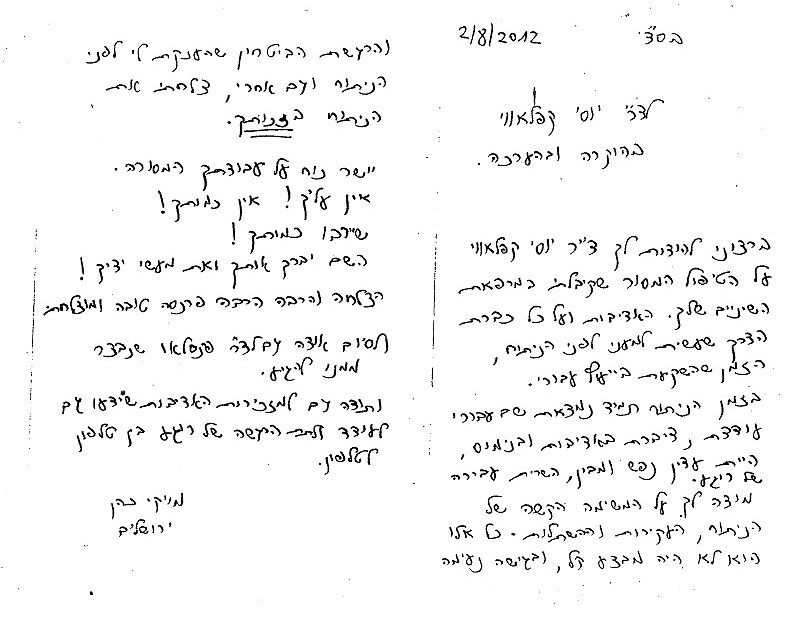 בס"ד
2/8/2012
לד"ר יוסי קפלאווי
בהוקרה ובהערכה.
ברצוני להודות לך ד"ר יוסי קפלאווי
על הטיפול המסור שקיבלתי במרפאת
השיניים שלך. האדיבות ועל כל כברת
הדרך שעשית למעני לפני הניתוח,
הזמן שהשקעת בייעוץ עבורי.
בזמן הניתוח תמיד נמצאת שם עבורי
עודדת ודיברת באדיבות ובנימוס,
היית עדין נפש ומבין, השרית אוירה
של רוגע.
מודה לך על המשימה הקשה של
הניתוח, העקירות וההשתלות. כל אלו
הוא לא היה מבצע קל, ובגישה נעימה
והרגשת הביטחון שהענקת לי לפני
הניתוח וגם אחרי, צלחתי את
הניתוח בזכותך.
יישר כוח על עבודתך המסורה.
אין עליך! אין כמותך!
שירבו כמותך!
השם יברך אותך ואת מעשי ידיך!
הצלחה והרבה הרבה פרנסה טובה ומוצלחת.
לסיום אודה גם לד"ר שנבצר
ממני להגיע.
ותודה גם למזכירות האדיבות שידעו גם
לעודד ולתת הרגשה של רוגע בין טלפון
לטלפון.
מויקי כהן
ירושלים